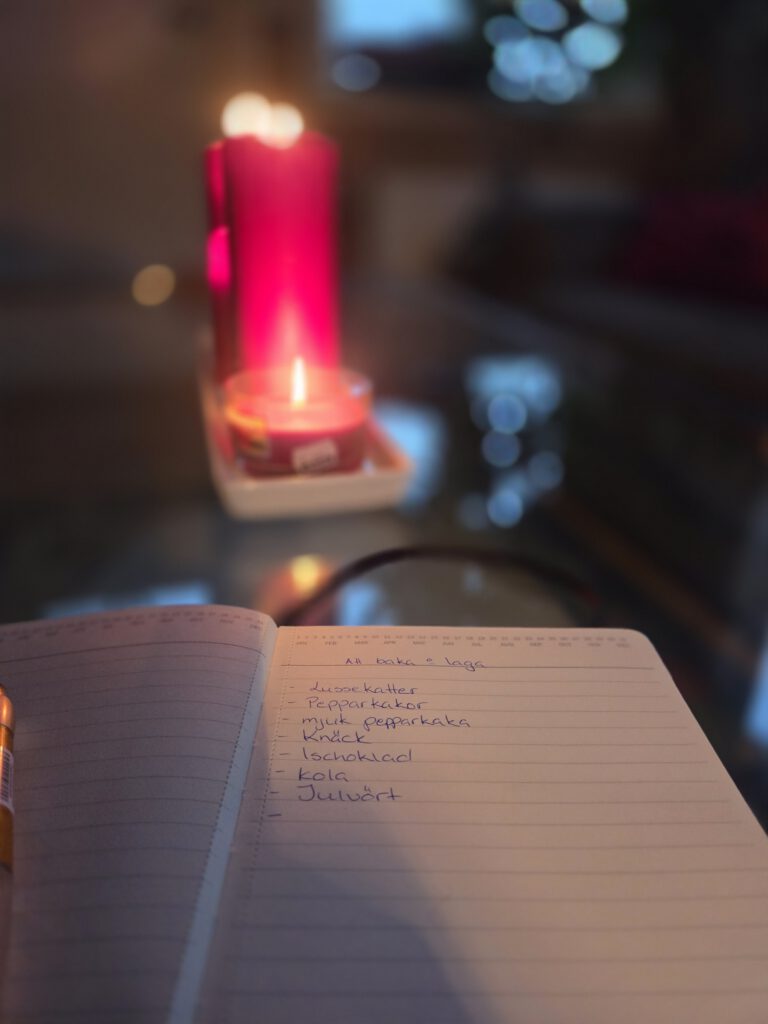 Att baka o laga
- Lussekatter
- Pepparkakor
- mjuk pepparkaka
- Knäck
- Ischoklad
- kola
- Julvört
-